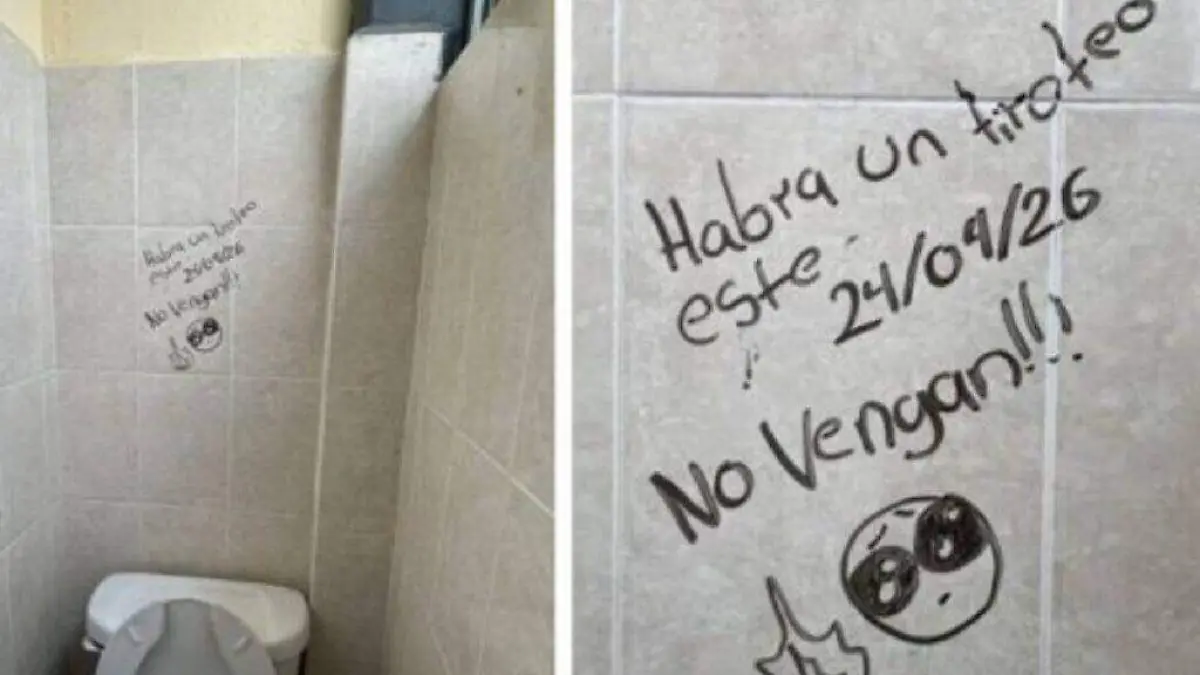 Habra un tiroteo
este 24/04/26
No Vengan!!!
Habra un tiroteo
este 24/09/26
No Vengan!!!